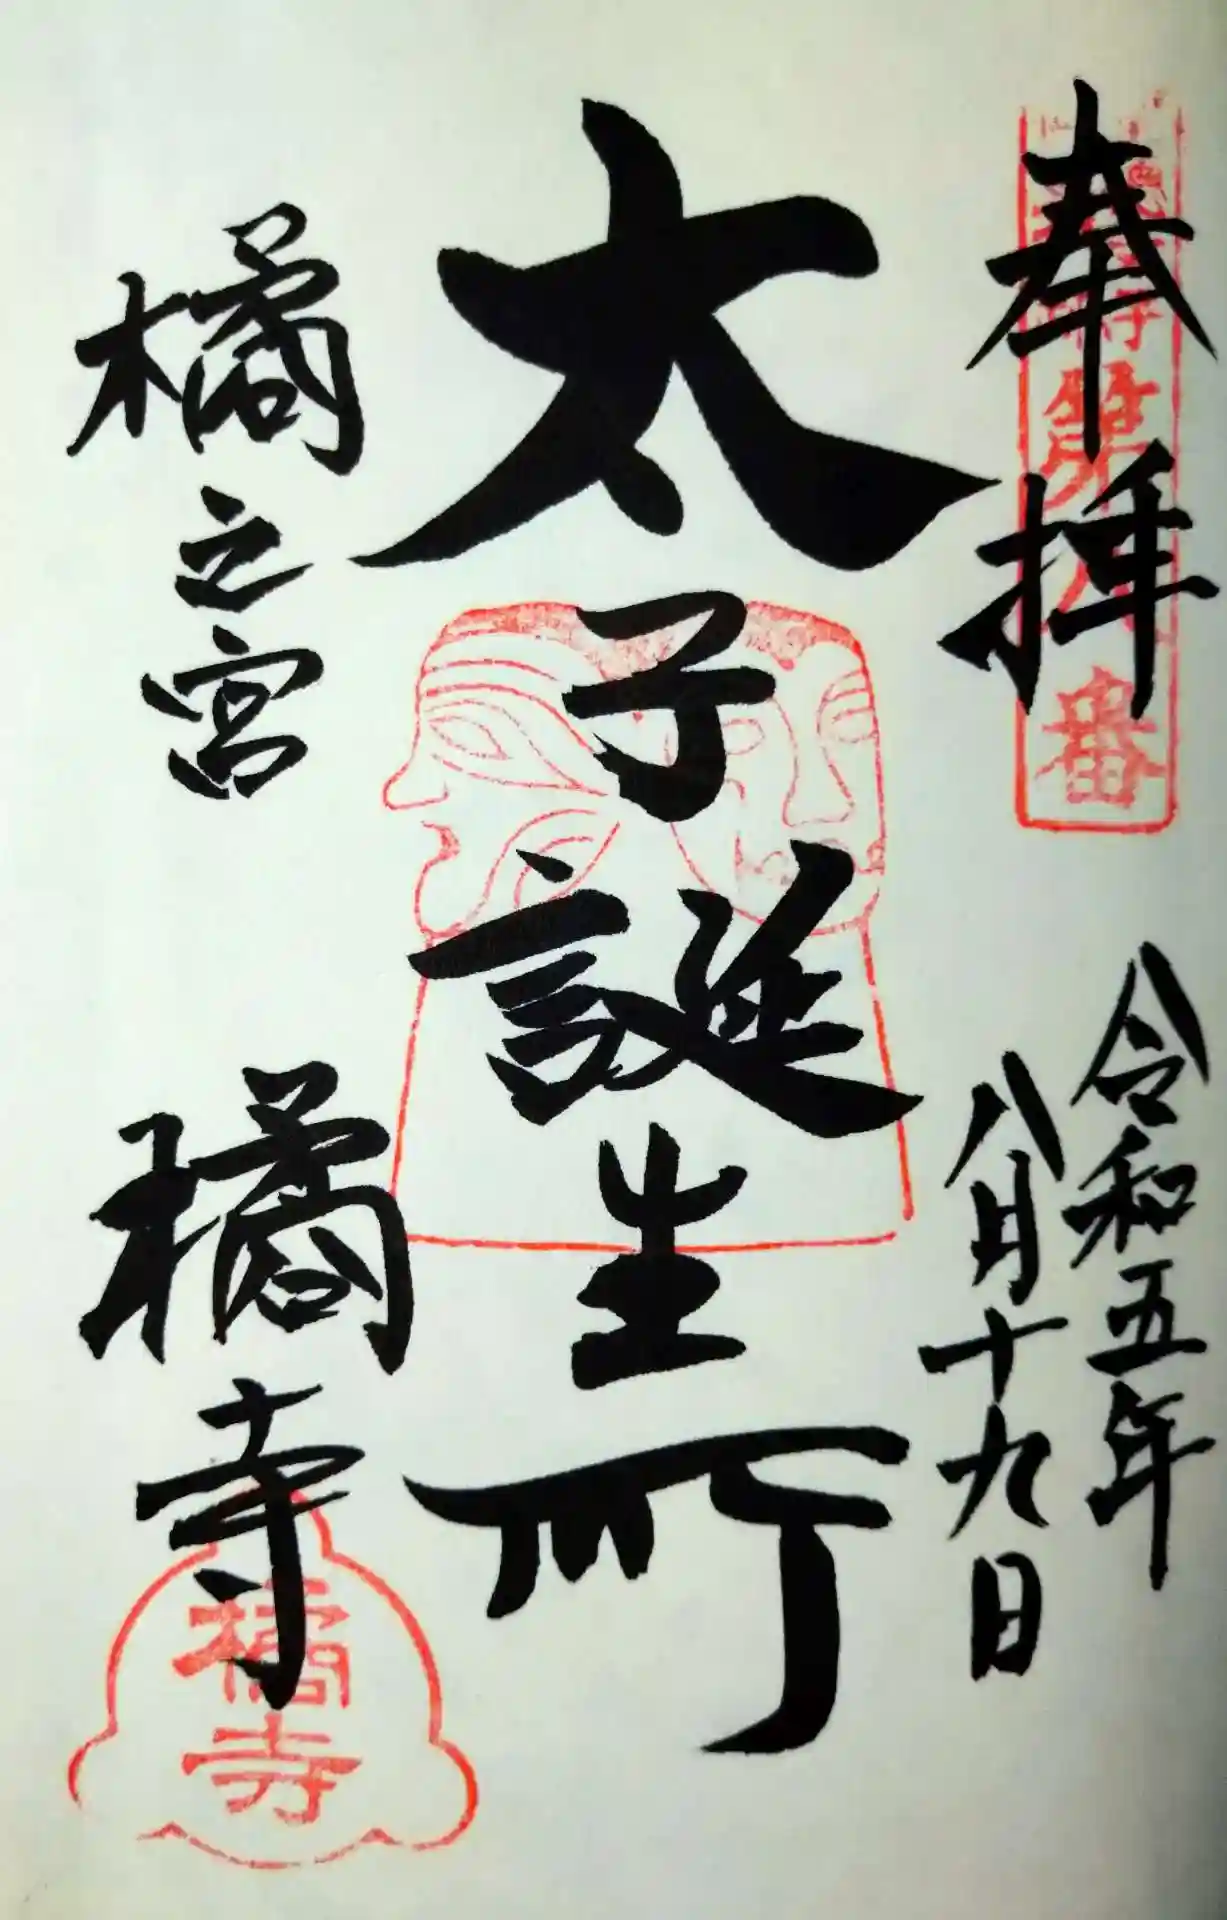 奉拝
令和五年
八月十九日
太子誕生所
橘之宮
橘寺
第八番
橘寺